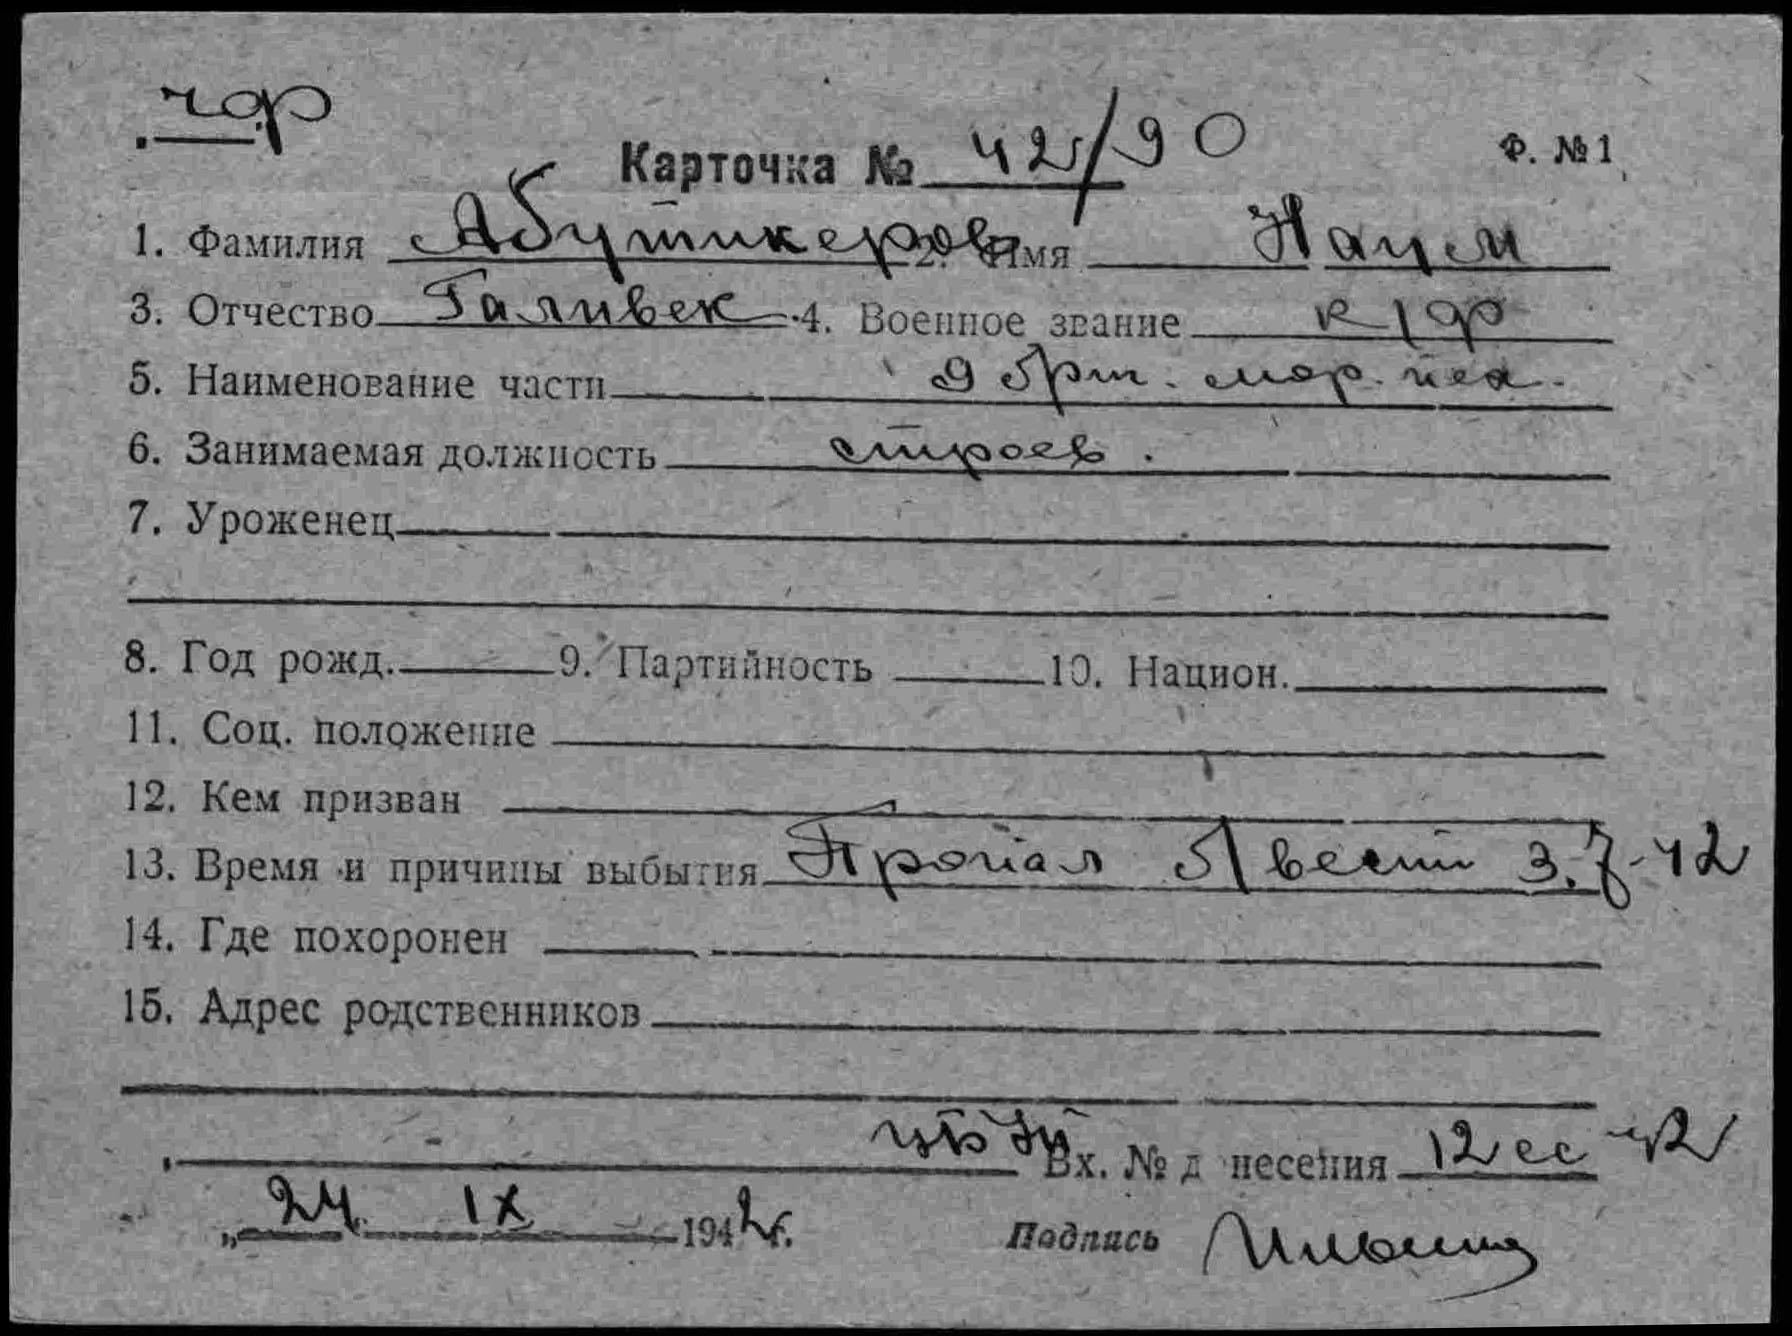 чф
Карточка № 42/90 Ф. № 1
1. Фамилия Абутикеров 2. Имя Наум
3. Отчество Галивек 4. Военное звание к/ф
5. Наименование части 9 брг. мор. пех.
6. Занимаемая должность строев.
7. Уроженец
8. Год рожд. 9. Партийность 10. Национ.
11. Соц. положение
12. Кем призван
13. Время и причины выбытия Пропал б/вести 3.7-42
14. Где похоронен
15. Адрес родственников
Вх. № д несения 12сс 42
„24 IX 1942г. Подпись